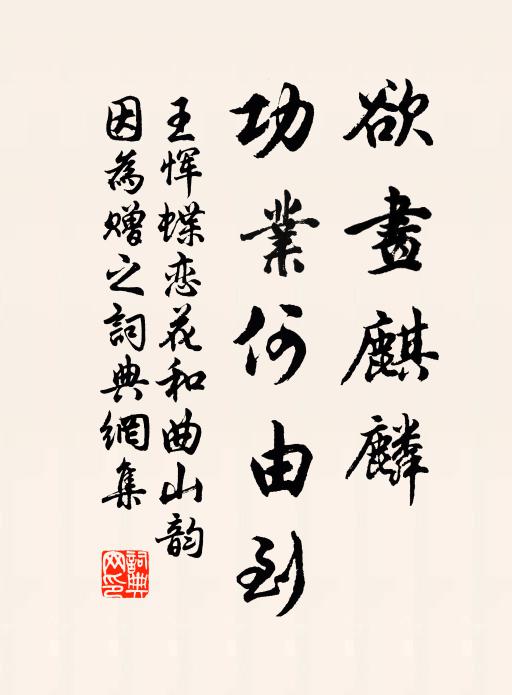 欲畫麒麟
功業何由到
王恽蝶恋花和曲山韵
因為贈之詞典網集
詞典
网印